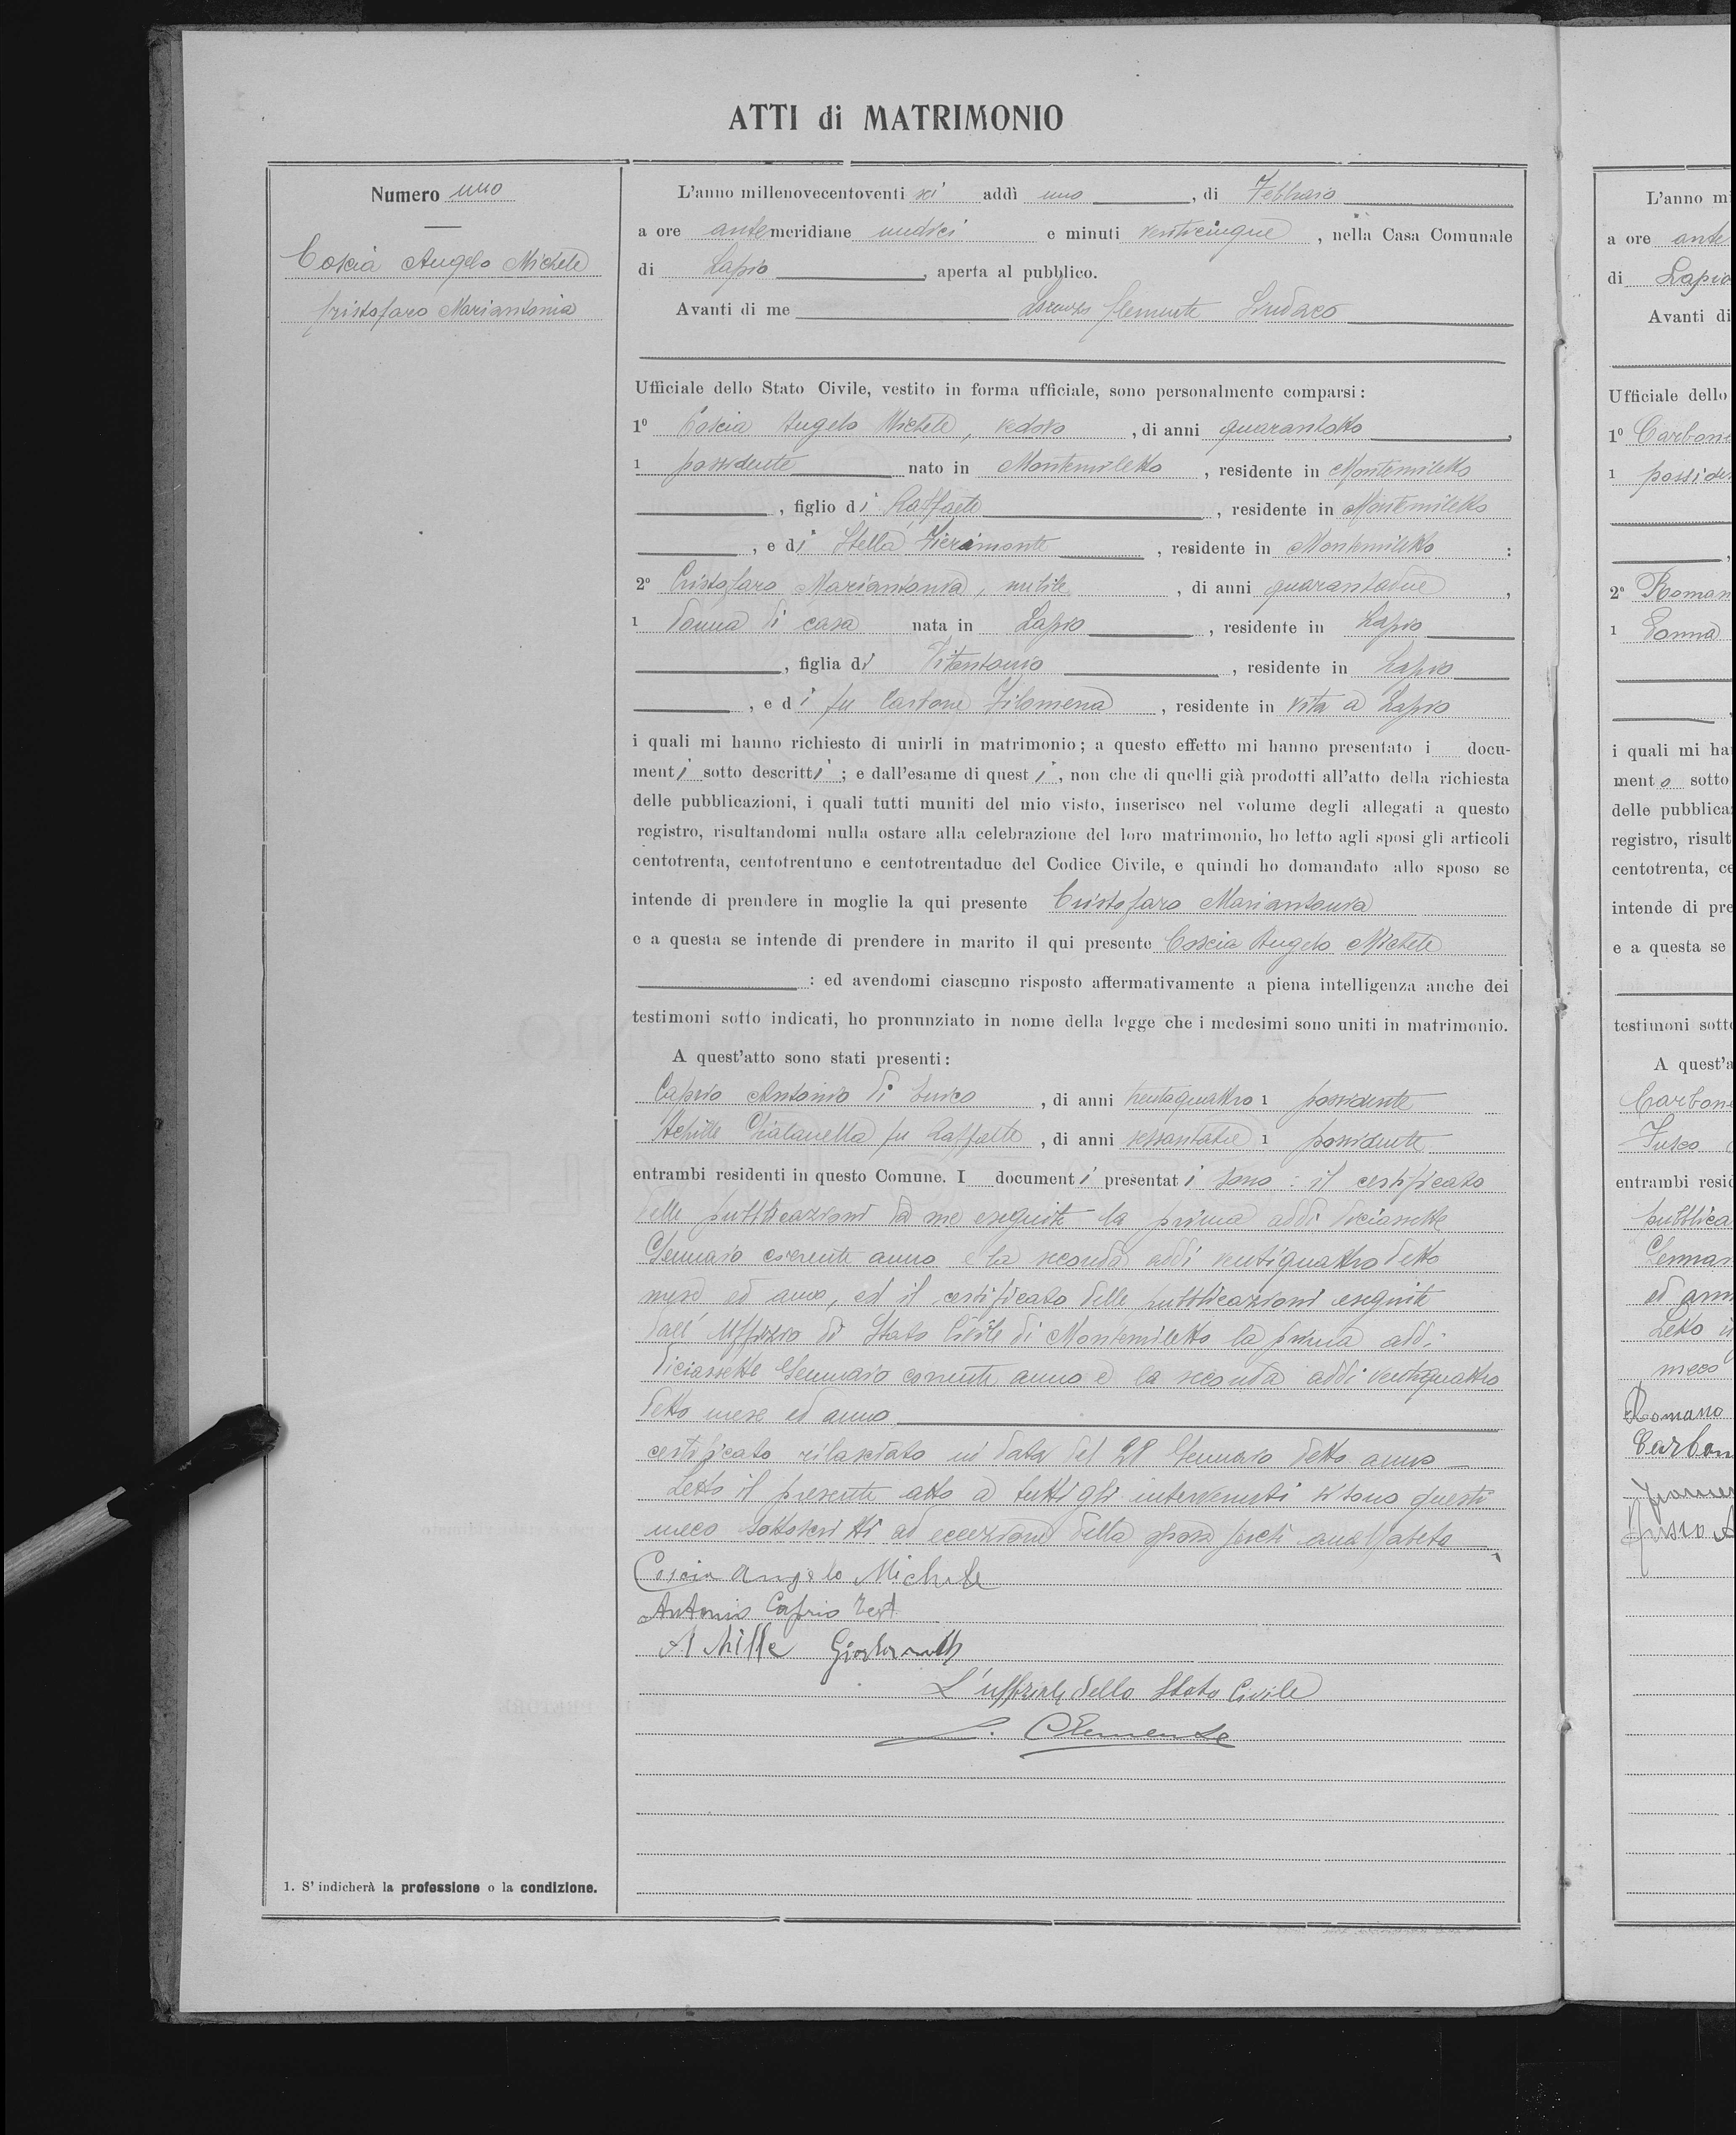 ATTI di MATRIMONIO
Numero uno
Coscia Angelo Michele
Cristofaro Mariantonia
L'anno millenovecentoventi sei addì uno, di Febbraio
a ore antemeridiane undici e minuti venticinque, nella Casa Comunale
di Lapio, aperta al pubblico.
Avanti di me Clemente Sindaco
Ufficiale dello Stato Civile, vestito in forma ufficiale, sono personalmente comparsi:
1º Coscia Angelo Michele, vedovo, di anni quarantotto,
1 possidente nato in Montemiletto, residente in Montemiletto
, figlio di Raffaele, residente in Montemiletto
, e di Stella Fieramonte, residente in Montemiletto:
2º Cristofaro Mariantonia, nubile, di anni quarantadue,
1 donna di casa nata in Lapio, residente in Lapio
, figlia di Vitantonio, residente in Lapio
, e di fu Carbone Filomena, residente in vita a Lapio
i quali mi hanno richiesto di unirli in matrimonio; a questo effetto mi hanno presentato i docu-
menti sotto descritti; e dall'esame di questi, non che di quelli già prodotti all'atto della richiesta
delle pubblicazioni, i quali tutti muniti del mio visto, inserisco nel volume degli allegati a questo
registro, risultandomi nulla ostare alla celebrazione del loro matrimonio, ho letto agli sposi gli articoli
centotrenta, centotrentuno e centotrentadue del Codice Civile, e quindi ho domandato allo sposo se
intende di prendere in moglie la qui presente Cristofaro Mariantonia
e a questa se intende di prendere in marito il qui presente Coscia Angelo Michele
: ed avendomi ciascuno risposto affermativamente a piena intelligenza anche dei
testimoni sotto indicati, ho pronunziato in nome della legge che i medesimi sono uniti in matrimonio.
A quest'atto sono stati presenti:
Caprio Antonio di, di anni trentaquattro 1 possidente
Achille fu Raffaele, di anni sessantatre 1 possidente
entrambi residenti in questo Comune. I documenti presentati sono: il certificato
delle pubblicazioni da me eseguite la prima addì diciassette
Gennaio corrente anno e la seconda addì ventiquattro detto
mese ed anno, ed il certificato delle pubblicazioni eseguite
dall'Uffizio di Stato Civile di Montemiletto la prima addì
diciassette Gennaio corrente anno e la seconda addì ventiquattro
detto mese ed anno
certificato rilasciato in data del 28 Gennaio detto anno
Letto il presente atto a tutti gli intervenuti si sono questi
meco sottoscritti ad eccezione della sposa perchè analfabeta
Coscia Angelo Michele
Antonio Caprio Test
Achille
L'uffiziale dello Stato Civile
Clemente
1. S'indicherà la professione o la condizione.
L'anno mi
a ore ante
di Lapio
Avanti di
Ufficiale dello
1º Carbone
1 possiden
2º Roman
1 Donna
i quali mi ha
mento sotto
delle pubblica
registro, risult
centotrenta, ce
intende di pre
e a questa se
testimoni sotto
A quest'a
Carbone
entrambi resid
pubblica
Gennai
ed ann
Letto i
meco
Romano
Carbon